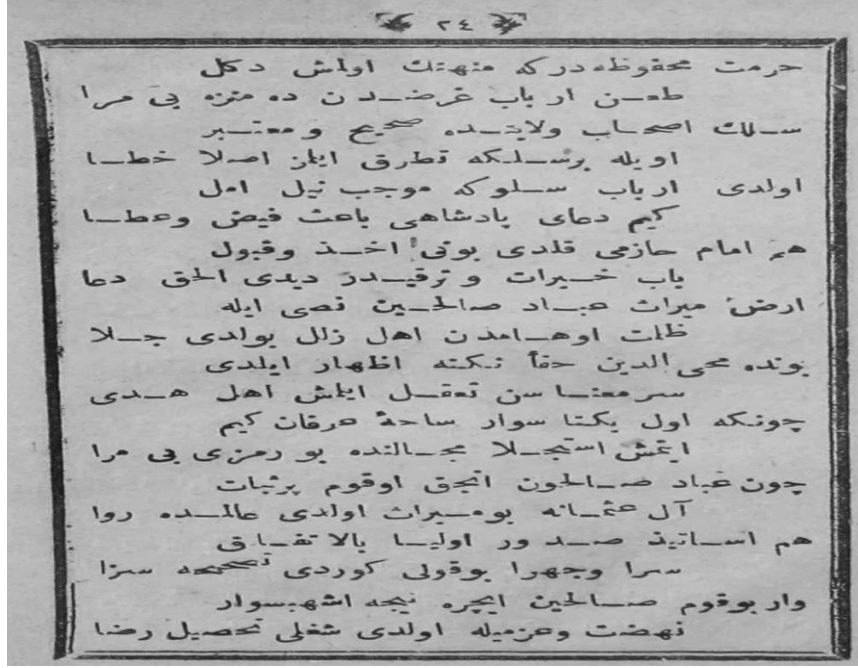 ٢٤
حرمت محفوظه در که منهتك اولمش دكل
طعن ارباب غرضدن ده منزه بی مرا
سلك اصحاب ولایتده صحیح و معتبر
اویله برسلكه تطرق ایلمز اصلا خطا
اولدی ارباب سلوكه موجب نیل امل
كیم دعای پادشاهی باعث فیض وعطا
هم امام حازمی قلدی بونی اخذ وقبول
باب خیرات و ترقیدر دیدی الحق دعا
ارض میراث عباد صالحین نصی ایله
ظلمت اوهامدن اهل زلل بولدی جلا
بونده محی الدین حقا نكته اظهار ایلدی
سر معناسن تعقل ایلمش اهل هدی
چونكه اول یكتا سوار ساحۀ عرفان كیم
ایتمش استجلا مجالنده بو رمزی بی مرا
چون عباد صالحون انجق اوقوم پرثبات
آل عثمانه بومیراث اولدی عالمده روا
هم اساتیذ صدور اولیا بالاتفاق
سرا وجهرا بوقولی كوردی تصحیحه سزا
وار بوقوم صالحین ایچره نیجه اشهبسوار
نهضت وعزمیله اولدی شغلی تحصیل رضا